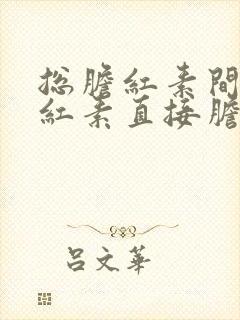 总膽紅素間
紅素直接膽
吕文華